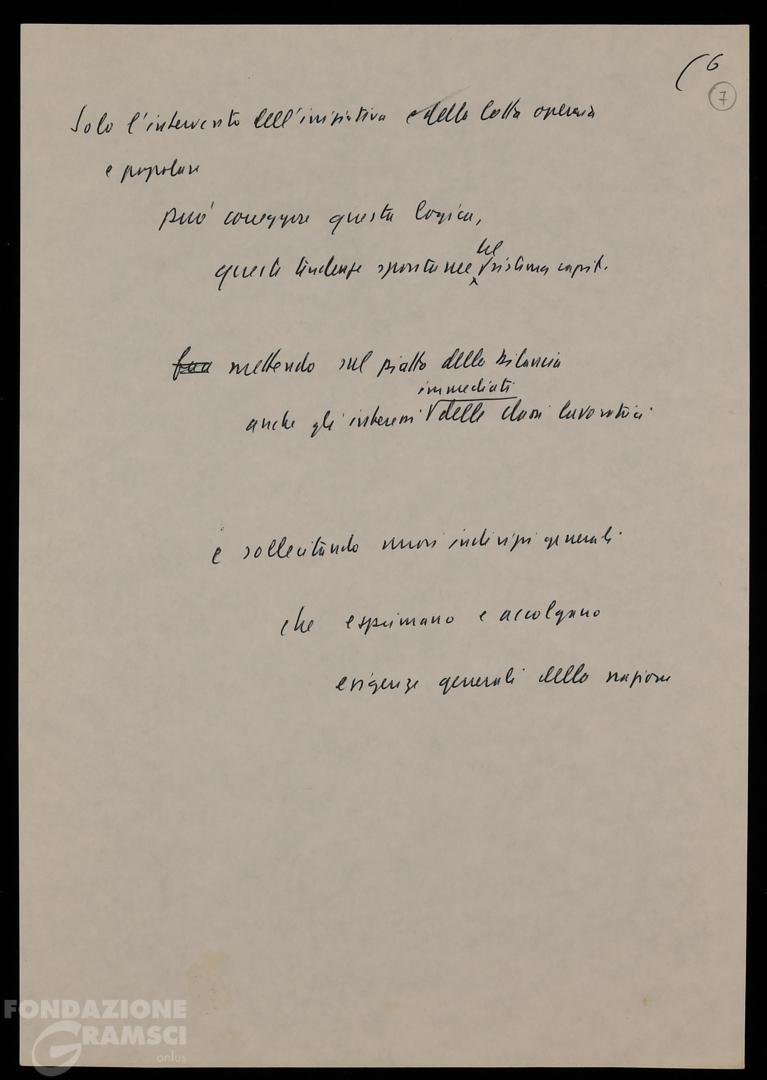 (6
7
Solo l'intervento dell'iniziativa e della lotta operaia
e popolare
può correggere questa logica,
queste tendenze spontanee del sistema capit.
mettendo sul piatto della bilancia
anche gli interessi immediati delle classi lavoratrici
e sollecitando nuovi indirizzi generali
che esprimano e accolgano
esigenze generali della nazione
FONDAZIONE
GRAMSCI
onlus